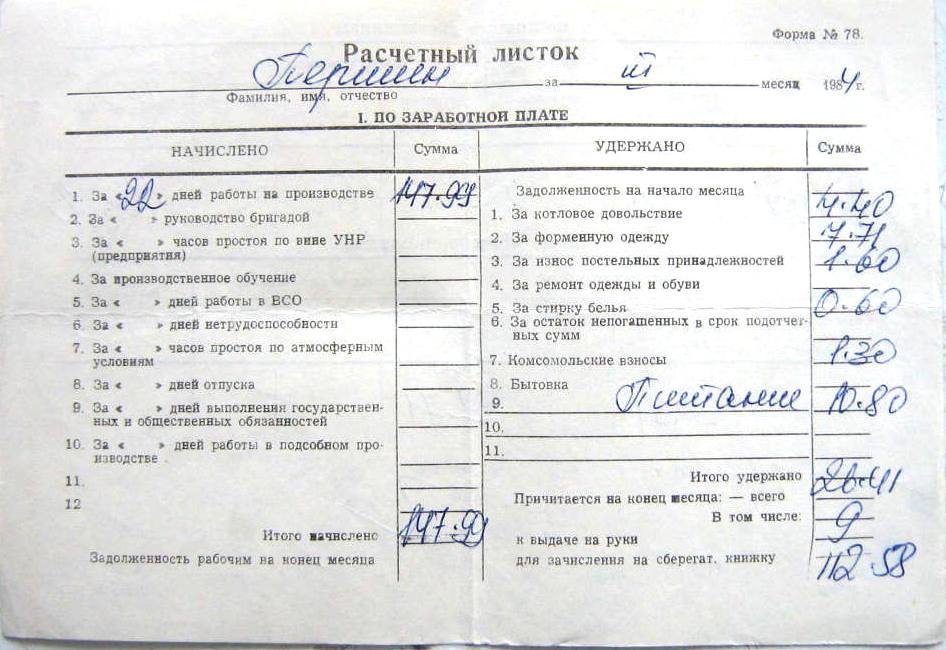 Форма № 78.
Расчетный листок
Першин за III месяц 1984 г.
Фамилия, имя, отчество
I. ПО ЗАРАБОТНОЙ ПЛАТЕ
НАЧИСЛЕНО Сумма УДЕРЖАНО Сумма
1. За «22» дней работы на производстве 147.99
2. За « » руководство бригадой
3. За « » часов простоя по вине УНР
(предприятия)
4. За производственное обучение
5. За « » дней работы в ВСО
6. За « » дней нетрудоспособности
7. За « » часов простоя по атмосферным
условиям
8. За « » дней отпуска
9. За « » дней выполнения государствен-
ных и общественных обязанностей
10. За « » дней работы в подсобном про-
изводстве .
11.
12
Итого начислено 147.99
Задолженность рабочим на конец месяца
Задолженность на начало месяца
1. За котловое довольствие 4.40
2. За форменную одежду 7.71
3. За износ постельных принадлежностей 1.60
4. За ремонт одежды и обуви
5. За стирку белья 0.60
6. За остаток непогашенных в срок подотчет-
ных сумм
7. Комсомольские взносы 1.30
8. Бытовка
9. Питание 10.80
10.
11.
Итого удержано 26.41
Причитается на конец месяца: — всего
В том числе:
к выдаче на руки 9
для зачисления на сберегат. книжку 112.58